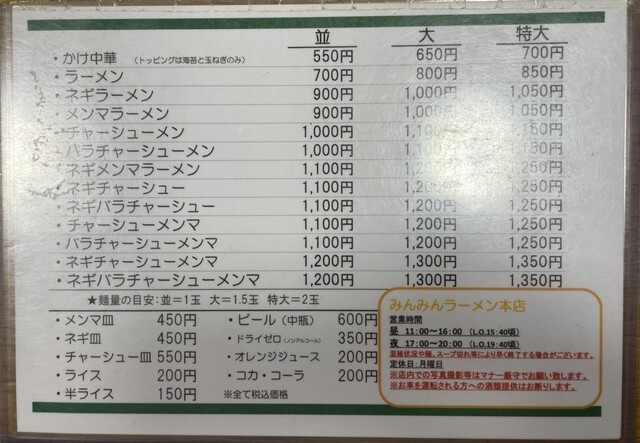 並 大 特大
・かけ中華 （トッピングは海苔と玉ねぎのみ） 550円 650円 700円
・ラーメン 700円 800円 850円
・ネギラーメン 900円 1,000円 1,050円
・メンマラーメン 900円 1,000円 1,050円
・チャーシューメン 1,000円 1,100円 1,150円
・バラチャーシューメン 1,000円 1,150円
・ネギメンマラーメン 1,100円 1,200円 1,250円
・ネギチャーシュー 1,100円 1,200円 1,250円
・ネギバラチャーシュー 1,100円 1,200円 1,250円
・チャーシューメンマ 1,100円 1,200円 1,250円
・バラチャーシューメンマ 1,100円 1,200円 1,250円
・ネギチャーシューメンマ 1,200円 1,300円 1,350円
・ネギバラチャーシューメンマ 1,200円 1,300円 1,350円
★麺量の目安：並＝1玉 大＝1.5玉 特大＝2玉
・メンマ皿 450円
・ネギ皿 450円
・チャーシュー皿 550円
・ライス 200円
・半ライス 150円
・ビール（中瓶） 600円
・ドライゼロ（ノンアルコール） 350円
・オレンジジュース 200円
・コカ・コーラ 200円
※全て税込価格
みんみんラーメン本店
営業時間
昼 11:00～16:00 （L.O.15:40頃）
夜 17:00～20:00 （L.O.19:40頃）
混雑状況や麺、スープ切れ等により早く終了する場合がございます。
定休日：月曜日
※店内での写真撮影等はマナー厳守でお願い致します。
※お車を運転される方への酒類提供はお断りします。